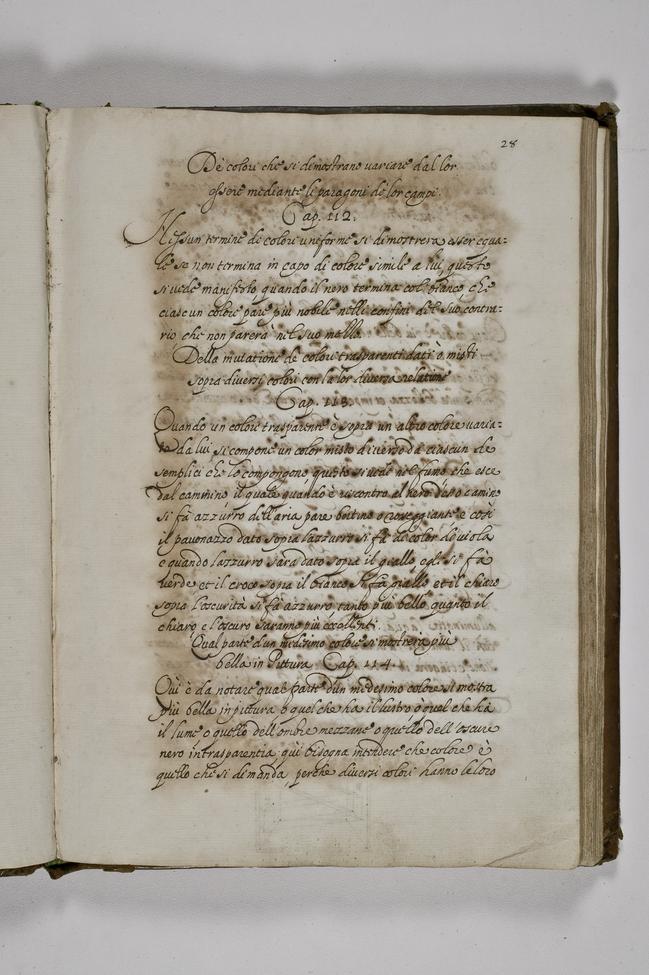 28
De colori che si dimostrano variare dal lor
essere mediante li paragoni de lor campi.
Cap. 112.
Nissun termine de colore uniforme si dimostrera esser equa=
le se non termina in capo di colore simile a lui, questo
si vede manifesto quando il nero termina col bianco, che
ciascun colore pare più nobile nelli confini del suo contra=
rio che non parerà nel suo mezzo.
Della mutatione de colori trasparenti dati o misti
sopra diversi colori con la lor diversa relatione
Cap. 113.
Quando un colore trasparente è sopra un altro colore varia=
to da lui si compone un color misto diverso da ciascun de
semplici che lo compongono, questo si vede nel fumo che esce
dal cammino il quale quando è riscontro al nero d'esso camino
si fà azzurro dell'aria pare berettino o rosseggiante e così
il pavonazzo dato sopra l'azzurro si fà de color de viola
e quando l'azzurro sara dato sopra il giallo egl. si fà
verde et il croco sopra il bianco si fà giallo et il chiaro
sopra l'oscurità si fa azzurro tanto più bello quanto il
chiaro e l'oscuro saranno più eccellenti.
Qual parte d'un medesimo colore si mostrera piu
bella in Pittura Cap. 114.
Qui è da notare qual parte d'un medesimo colore si mostra
più bella in pittura o quel che ha il lustro o quel che hà
il lume o quello dell'ombre mezzane o quello dell'oscure
nero in trasparentia, qui bisogna intendere che colore è
quello che si dimanda, perche diversi colori hanno le loro